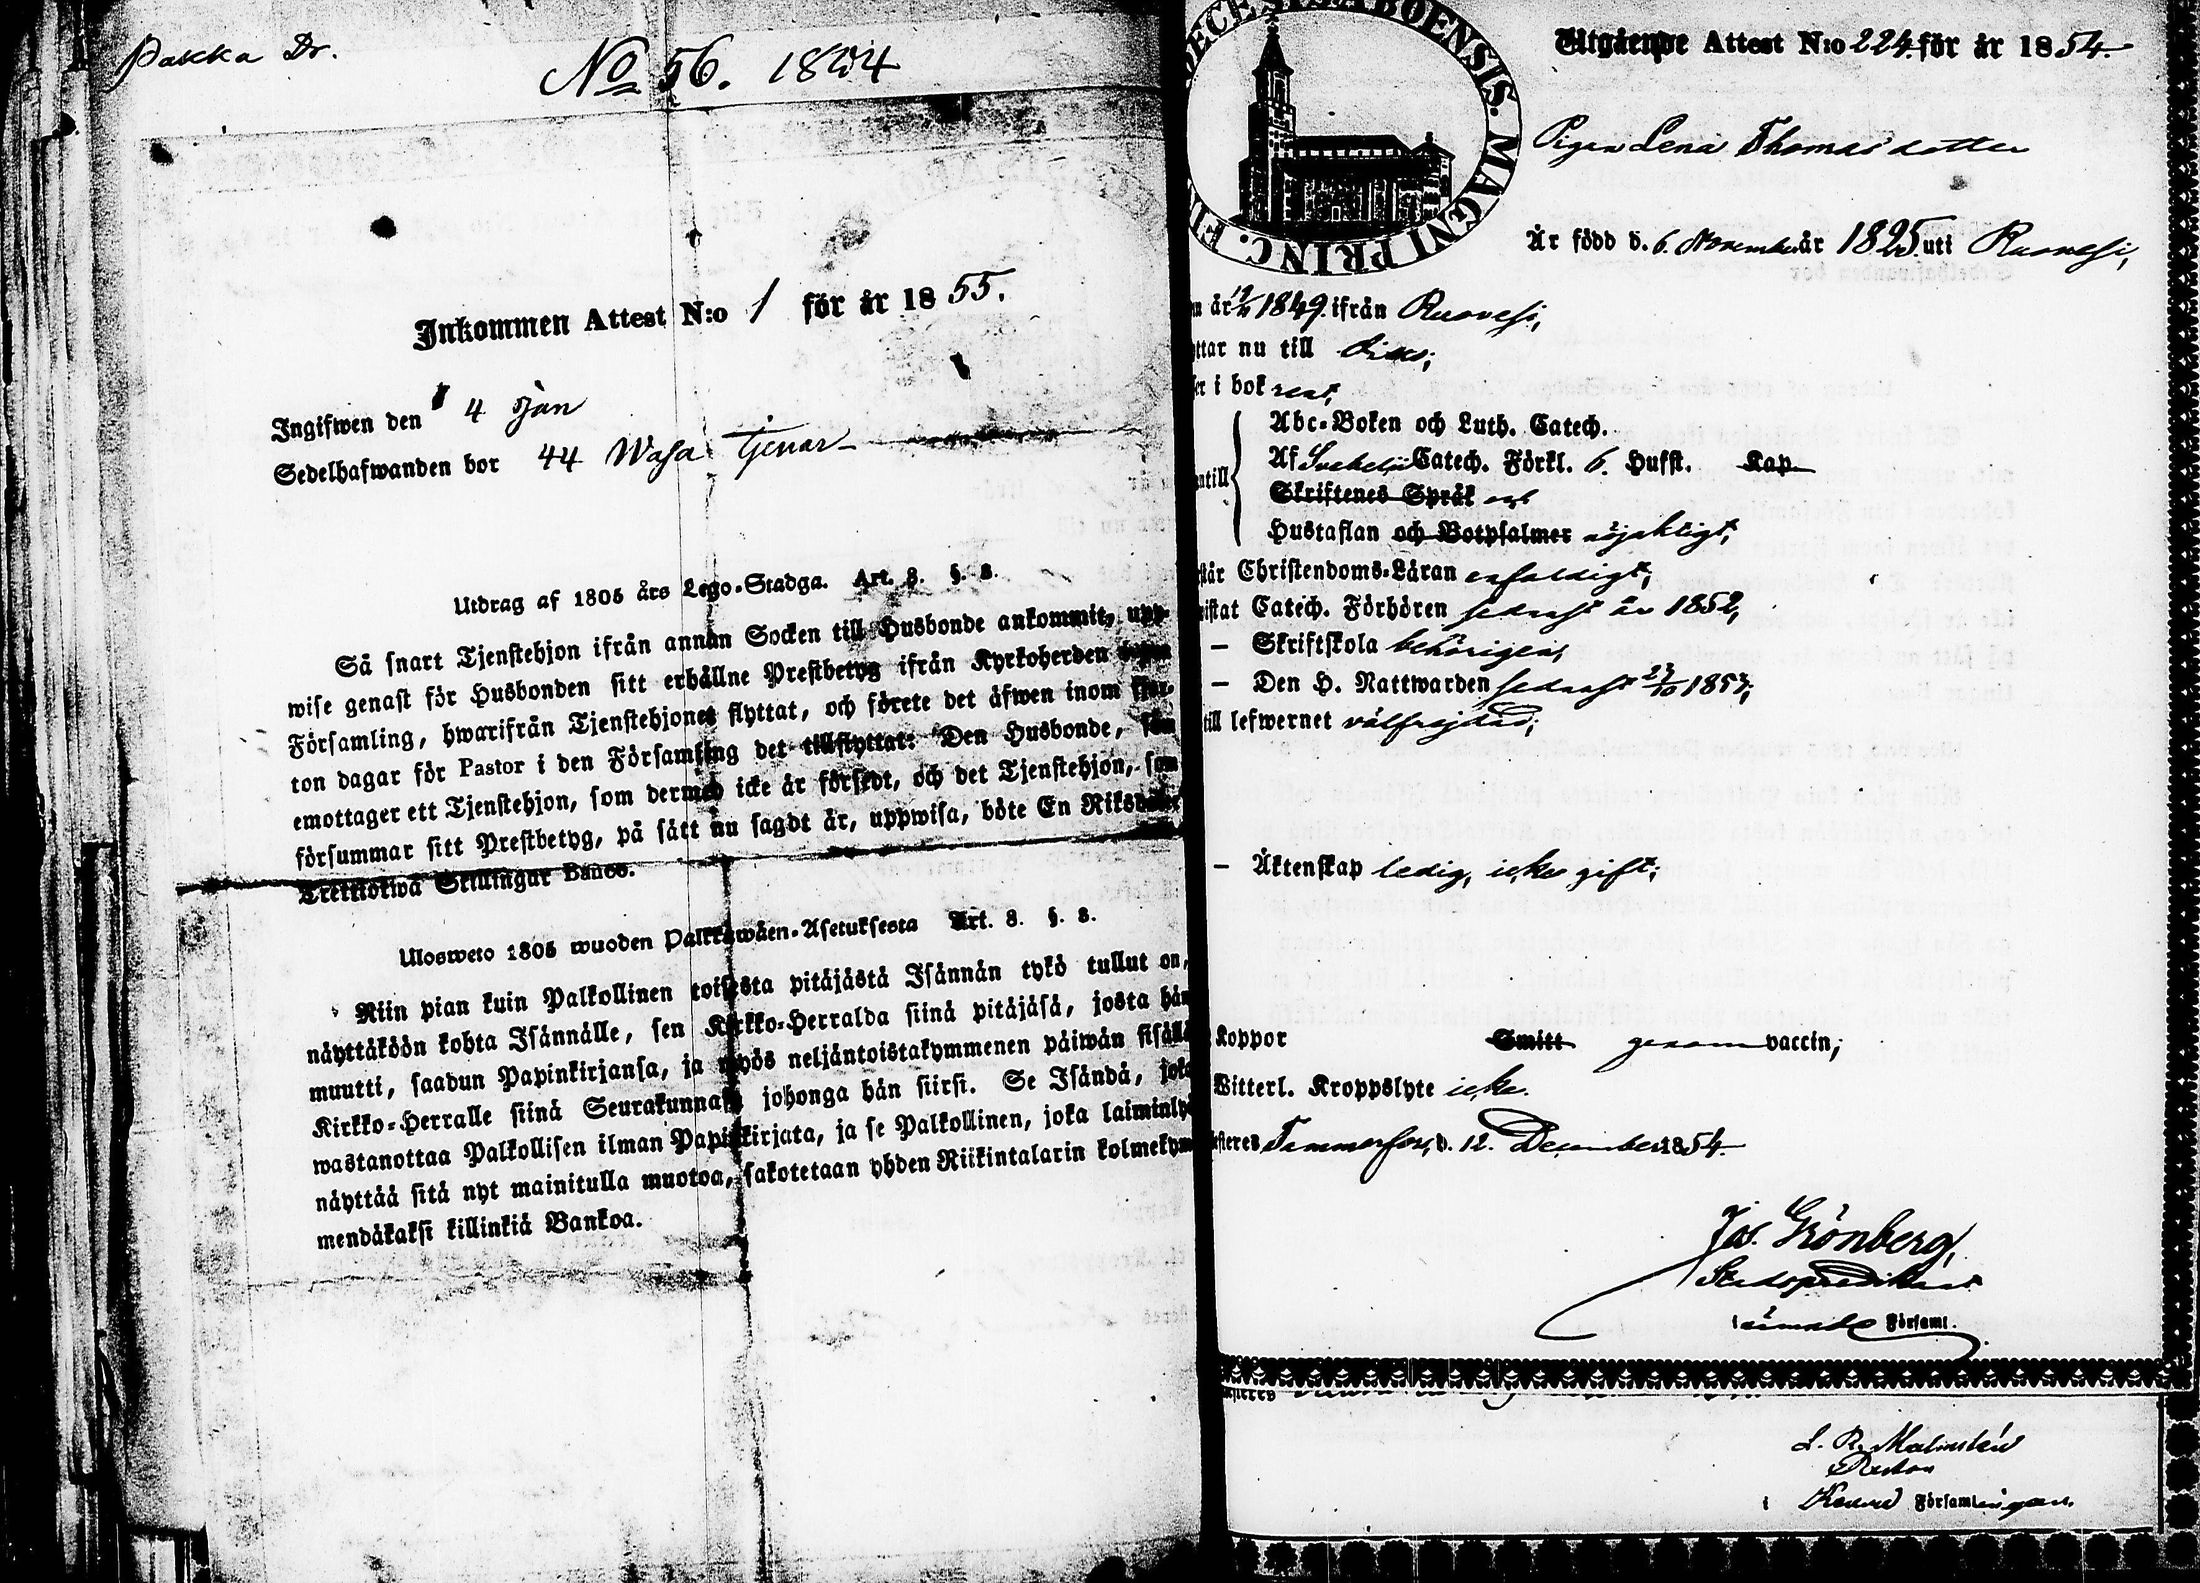 Pakka Dr.
No 56. 1854
Inkommen Attest N:o 1 för år 1855.
Ingifwen den 4 Jan
Sedelhafwanden bor 44 Wasa tjenar
Utdrag af 1805 års Lego-Stadga. Art. 8. §. 8.
Så snart Tjenstehjon ifrån annan Socken till Husbonde ankommit, upp-
wise genast för Husbonden sitt erhållne Prestbetyg ifrån Kyrkoherden
Församling, hwarifrån Tjenstehjonet flyttat, och förete det äfwen inom fjor-
ton dagar för Pastor i den Församling det tillflyttat: Den Husbonde, som
emottager ett Tjenstehjon, som dermed icke är försedt, och det Tjenstehjon, som
försummar sitt Prestbetyg, på sätt nu sagdt är, uppwisa, böte En Riksdaler
Trettiotwå Skillingar Banco.
Ulosweto 1805 wuoden Palkkawäen-Asetuksesta Art. 8. §. 8.
Niin pian kuin Palkollinen toisesta pitäjästä Isännän tykö tullut on,
näyttäköön kohta Isännälle, sen Kirkko-Herralda siinä pitäjäsä, josta hän
muutti, saadun Papinkirjansa, ja myös neljäntoistakymmenen päiwän sisällä
Kirkko-Herralle siinä Seurakunnasa johonga hän siirsi. Se Isändä, joka
wastanottaa Palkollisen ilman Papinkirjata, ja se Palkollinen, joka laiminlyö
näyttää sitä nyt mainitulla muotoa, sakotetaan yhden Riikintalarin kolmekym-
mendäkaksi killinkiä Bankoa.
ECESIS ABOENSIS. MAGNI PRINC. FI
Utgående Attest N:o 224 för år 1854.
Pigan Lena Thomasdotter
Är född d. 6. November år 1825 uti Ruovesi,
n år 1849 ifrån Ruovesi,
yttar nu till
ser i bok rent,
Abc-Boken och Luth. Catech.
Af Svebelii Catech. Förkl. 6. Hufst. Kap.
ntill Skriftenes Språk
Hustaflan och Botpsalmer nöjaktigt,
står Christendoms-Läran enfaldigt,
istat Catech. Förhören sednast år 1852,
– Skriftskola behörigen,
– Den H. Nattwarden sednast 23/10 1853,
till lefwernet välfrejdad;
– Äktenskap ledig, icke gift;
Koppor Smitt genom vaccin,
Witterl. Kroppslyte icke.
steres Tammerfors, d. 12. December 1854.
Jos. Grönberg,
Stadspredikant
Församl.
L. R. Malmstén
Pastor
i Församlingen.